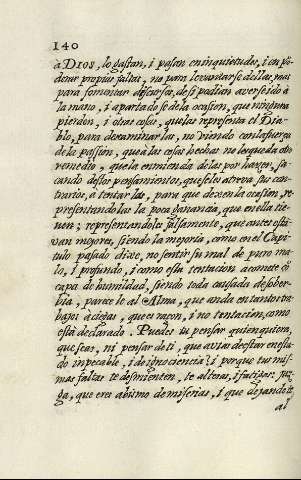 140
à Dios, lo gastan, i pasan en inquietudes, i en po-
derar propias faltas, no para levantarse dellas, mas
para fomentar discursos, de si podian aver se ido à
la mano, i apartadose de la ocasion, que ninguna
pierdon, i otras cosas, que les representa el Dia-
blo, para desanimarlas, no viendo con la fuerza
de la passion, que à las cosas hechas no les queda otro
remedio, que la enmienda de las por hazer, sa-
cando destos pensamientos, que se les atreva sus con-
trarios, à tentarlas, para que dexen la ocasion, re-
presentandoles la poca ganancia, que en ella tie-
nen; representandoles falsamente, que antes esta-
van mejores, siendo la mejoria, como en el Capi-
tulo pasado dixe, no sentir su mal de puro ma-
lo, i profundo, i como esta tentacion acomete cõ
capa de humildad, siendo toda causada de sober-
bia, parecele al Alma, que anda en tantos tra-
bajos à ciegas, que es razon, i no tentacion, como
està declarado. Puedes tu pensar quien quiera,
que seas, ni pensar de ti, que avias de estar en esta-
do impecable, i de ignociencia? i porque tus mis-
mas faltas te desmienten, te alteras, i fatigas: juz-
ga, que eres abismo de miserias, i que dejando te
al